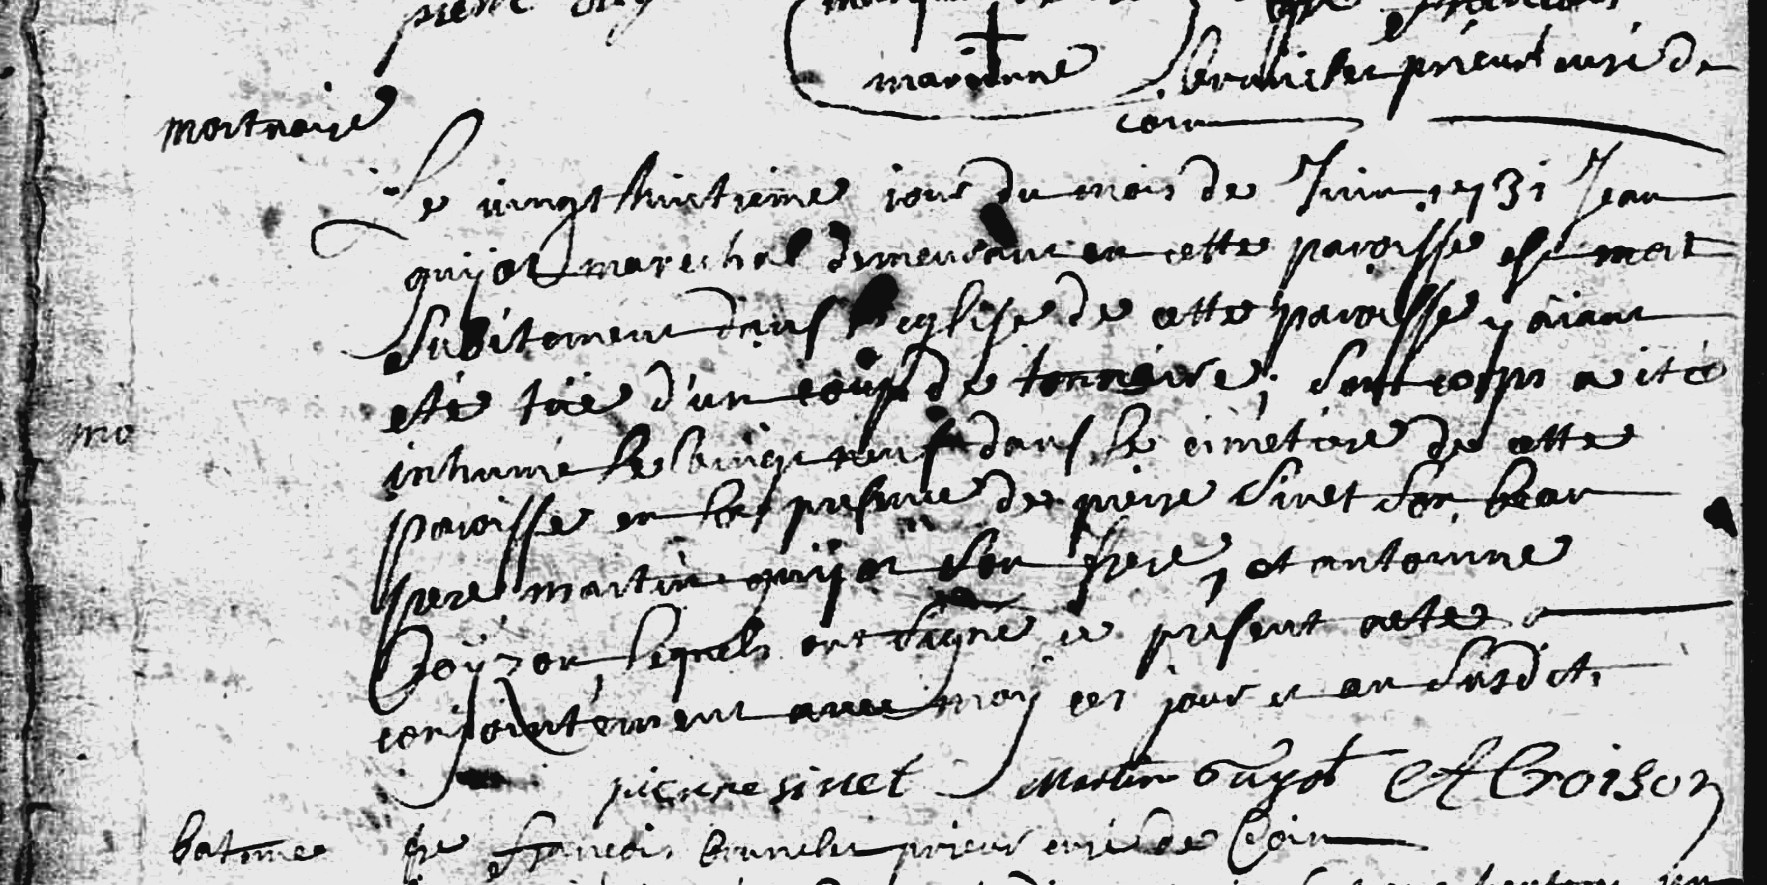 pierre
marianne prieur curé de
coin
mortuaire
Le vingt huitieme jour du mois de Juin 1731 Jean
guijot marechal demeurant en cette paroisse est mort
subitement dans l'eglise de cette paroisse y aiant
esté tüé d'un coup de tonnaire, sont corps a été
mo
inhumé le vingt neuf dans le cimetiere de cette
paroisse en la presence de pierre sinet son beau
pere martin guijot son frere, et antoinne
Croÿzon, lequels ont signé ce présent acte
conjointement avec moy ces jour et an susdit,
pierre sinet Martin Guyot A Croison
batême fre françois prieur curé de Coin